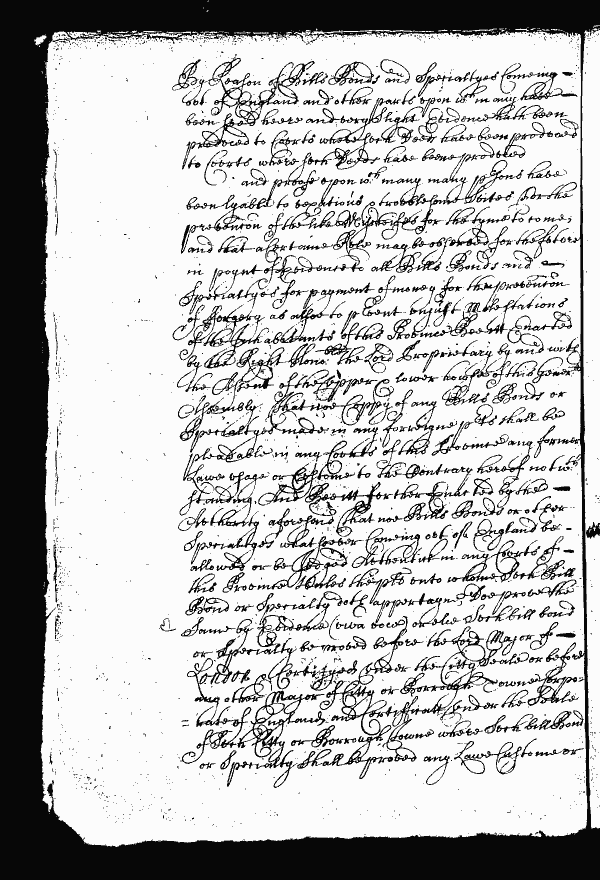 By Reason of Bills Bonds and Specialtyes Comeing
out of England and other parts upon wch in any have
been sued heere and very slight Evidence hath been
produced to Courts where such Deeds have been produced
to Courts where such Deeds have been produced
and proofe upon wch many many psons have
been lyable to vexatious & troublesome Suites For the
prevencon of the like Mischeifes for the tyme to come,
and that a Certaine Rule may be observed for the future
in poynt of Evidence to all Bills Bonds and
Specialtyes for payment of money for the prevencon
of Forgery as alsoe to pvent unjust Molestations
of the Inhabitants of this Province Bee itt Enacted
by the Right Honoble the Lord Proprietary by and with
the Assent of the upper & lower howse of this Generll
Assembly, That noe Coppy of any Bills Bonds or
Specialtyes made in any forreigne pts shall be
pleadable in any Courts of this Province any former
Lawe usage or Custome to the Contrary hereof notwth
standing, And Bee itt further Enacted by the
Authority aforesaid That noe Bills Bonds or other
Specialtyes whatsoever Comeing out of England be
allowed or be Judged Authentick in any Courts of
this Province Unles the pty unto whome Such Bill
Bond or Specialty doth appertayne, Doe prove the
Same by Evidence (viva voce) or else Such bill bond
or Specialty be proved before the Lord Major of
London & Certifyed under the Citty Seale or before
any other Major of Citty or Borrough Towne Corpo=
=rate of England, and Certificatt under the Seale
of Such Citty or Borrough Towne where Such bill Bond
or Specialty Shall be proved any Lawe Custome or